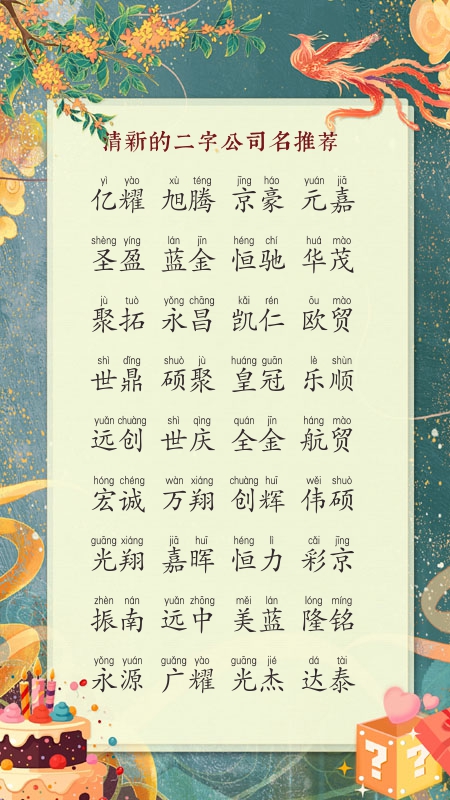 清新的二字公司名推荐
yì yào xù téng jīng háo yuán jiā
亿耀 旭腾 京豪 元嘉
shèng yíng lán jīn héng chí huá mào
圣盈 蓝金 恒驰 华茂
jù tuò yǒng chāng kǎi rén ōu mào
聚拓 永昌 凯仁 欧贸
shì dǐng shuò jù huáng guān lè shùn
世鼎 硕聚 皇冠 乐顺
yuǎn chuàng shì qìng quán jīn háng mào
远创 世庆 全金 航贸
hóng chéng wàn xiáng chuàng huī wěi shuò
宏诚 万翔 创辉 伟硕
guāng xiáng jiā huī héng lì cǎi jīng
光翔 嘉晖 恒力 彩京
zhèn nán yuǎn zhōng měi lán lóng míng
振南 远中 美蓝 隆铭
yǒng yuán guǎng yào guāng jié dá tài
永源 广耀 光杰 达泰
? ?